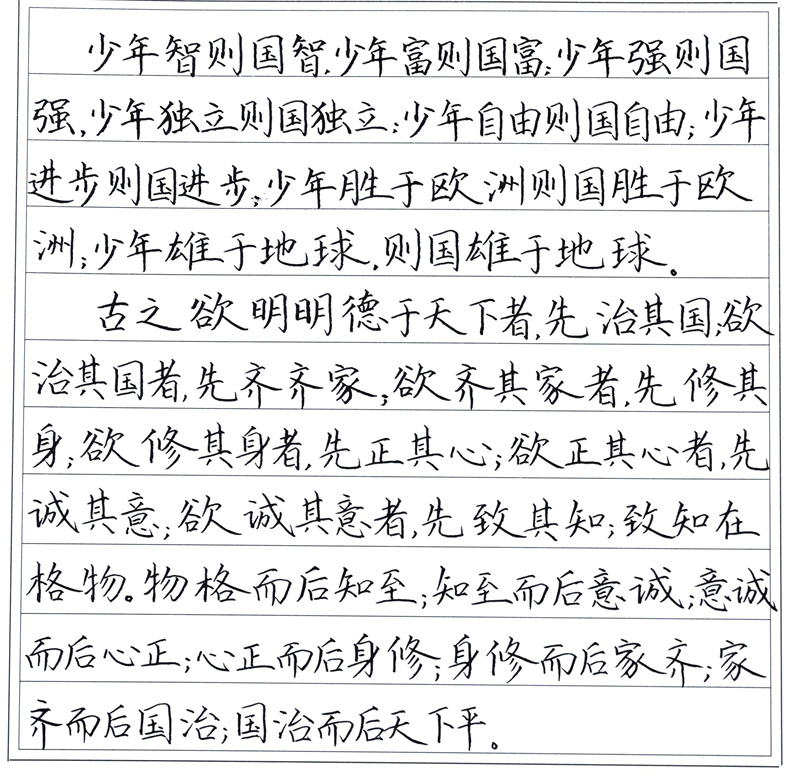 少年智则国智,少年富则国富;少年强则国
强,少年独立则国独立;少年自由则国自由;少年
进步则国进步;少年胜于欧洲则国胜于欧
洲;少年雄于地球,则国雄于地球。
古之欲明明德于天下者,先治其国;欲
治其国者,先齐齐家;欲齐其家者,先修其
身;欲修其身者,先正其心;欲正其心者,先
诚其意;欲诚其意者,先致其知;致知在
格物。物格而后知至;知至而后意诚;意诚
而后心正;心正而后身修;身修而后家齐;家
齐而后国治;国治而后天下平。